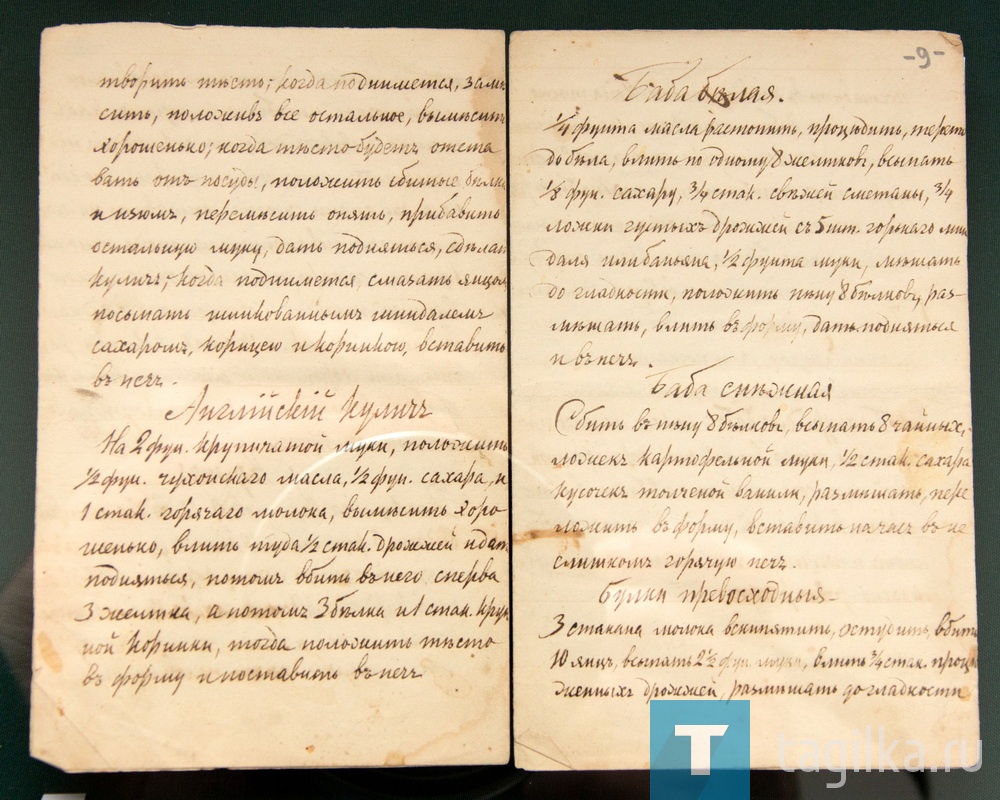 творить тѣсто; когда поднимется, замѣ
сить, положивъ все остальное, вымѣсить
хорошенько; когда тѣсто будетъ отста
вать отъ посуды, положить сбитые бѣлки
и изюмъ, перемѣсить опять, прибавить
остальную муку, дать подняться, сдѣлать
куличъ; когда поднимется смазать яицом
посыпать шинкованнымъ миндалемъ
сахаромъ, корицею и коринкою, вставить
въ печь.
Англійскій куличъ
На 2 фун. крупичатой муки, положить
1/2 фун. чухонскаго масла, 1/2 фун. сахара, и
1 стак. горячаго молока, вымѣсить хоро
шенько, влить туда 1/2 стак. дрожжей и дать
подняться, потомъ вбить въ него сперва
3 желтка, а потомъ 3 бѣлка и 1 стак. круп
ной коринки, тогда положить тѣсто
въ форму и поставить въ печь
-9-
Баба бѣлая.
1/4 фунта масла растопить, процѣдить, тереть
до бѣла, влить по одному 8 желтковъ, всыпать
1/8 фун. сахару, 3/4 стак. свѣжей сметаны, 3/4
ложки густыхъ дрожжей съ 5 шт. горькаго мин
даля или баньяна, 1/2 фунта муки, мѣшать
до гладкости, положить пѣну 8 бѣлковъ, раз-
мѣшать, влить въ форму, дать подняться
и въ печь.
Баба снѣжная
Сбить въ пѣну 8 бѣлковъ, всыпать 8 чайныхъ
ложекъ картофельной муки, 1/2 стак. сахара
кусочекъ толченой ванили, размѣшать, пере
ложить въ форму, вставить на часъ въ не
слишкомъ горячую печь.
Булки превосходныя
3 стакана молока вскипятить, остудить, вбить
10 яицъ, всыпать 2 1/2 фун. муки, влить 3/4 стак. процѣ
женныхъ дрожжей, размѣшать до гладкости
T
tagilka.ru